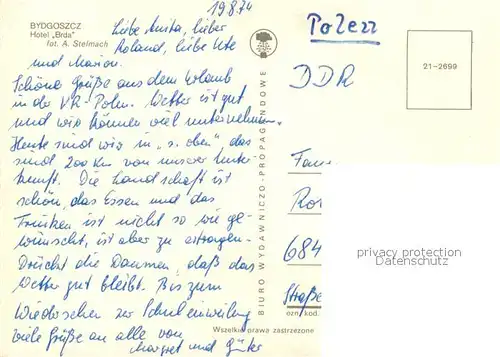 19.8.74
BYDGOSZCZ
Hotel „Brda"
fot. A. Stelmach
Liebe Anita, lieber
Roland, liebe Ute
und Mario.
Schöne Grüße aus dem Urlaub
in der VR-Polen. Wetter ist gut
und wir können viel unternehmen.
Heute sind wir in „s. oben" das
sind 200 km von unserer Unter-
kunft. Die Landschaft ist
schön, das Essen und das
Trinken ist nicht so wie ge-
wünscht, ist aber zu ertragen.
Drückt die Daumen, daß das
Wetter gut bleibt. Bis zum
Wiedersehen zur Schuleinweihung
viele Grüße an alle von
Margret und Günter
BIURO WYDAWNICZO-PROPAGANDOWE
Wszelkie prawa zastrzeżone
Polen
DDR
21-2699
Fam
Ro
684
Straße
ozn. kod.
privacy protection
Datenschutz